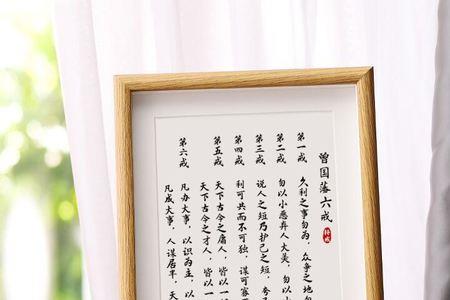 曾国藩六戒
第一戒 久利之事勿为，众争之地勿
第二戒 勿以小恶弃人大美，勿以小
第三戒 说人之短乃护己之短，夸己
第四戒 利可共而不可独，谋可寡
第五戒 天下古今之庸人，皆以一
天下古今之才人，皆以一
第六戒 凡办大事，以识为主，以
凡成大事，人谋居半，天